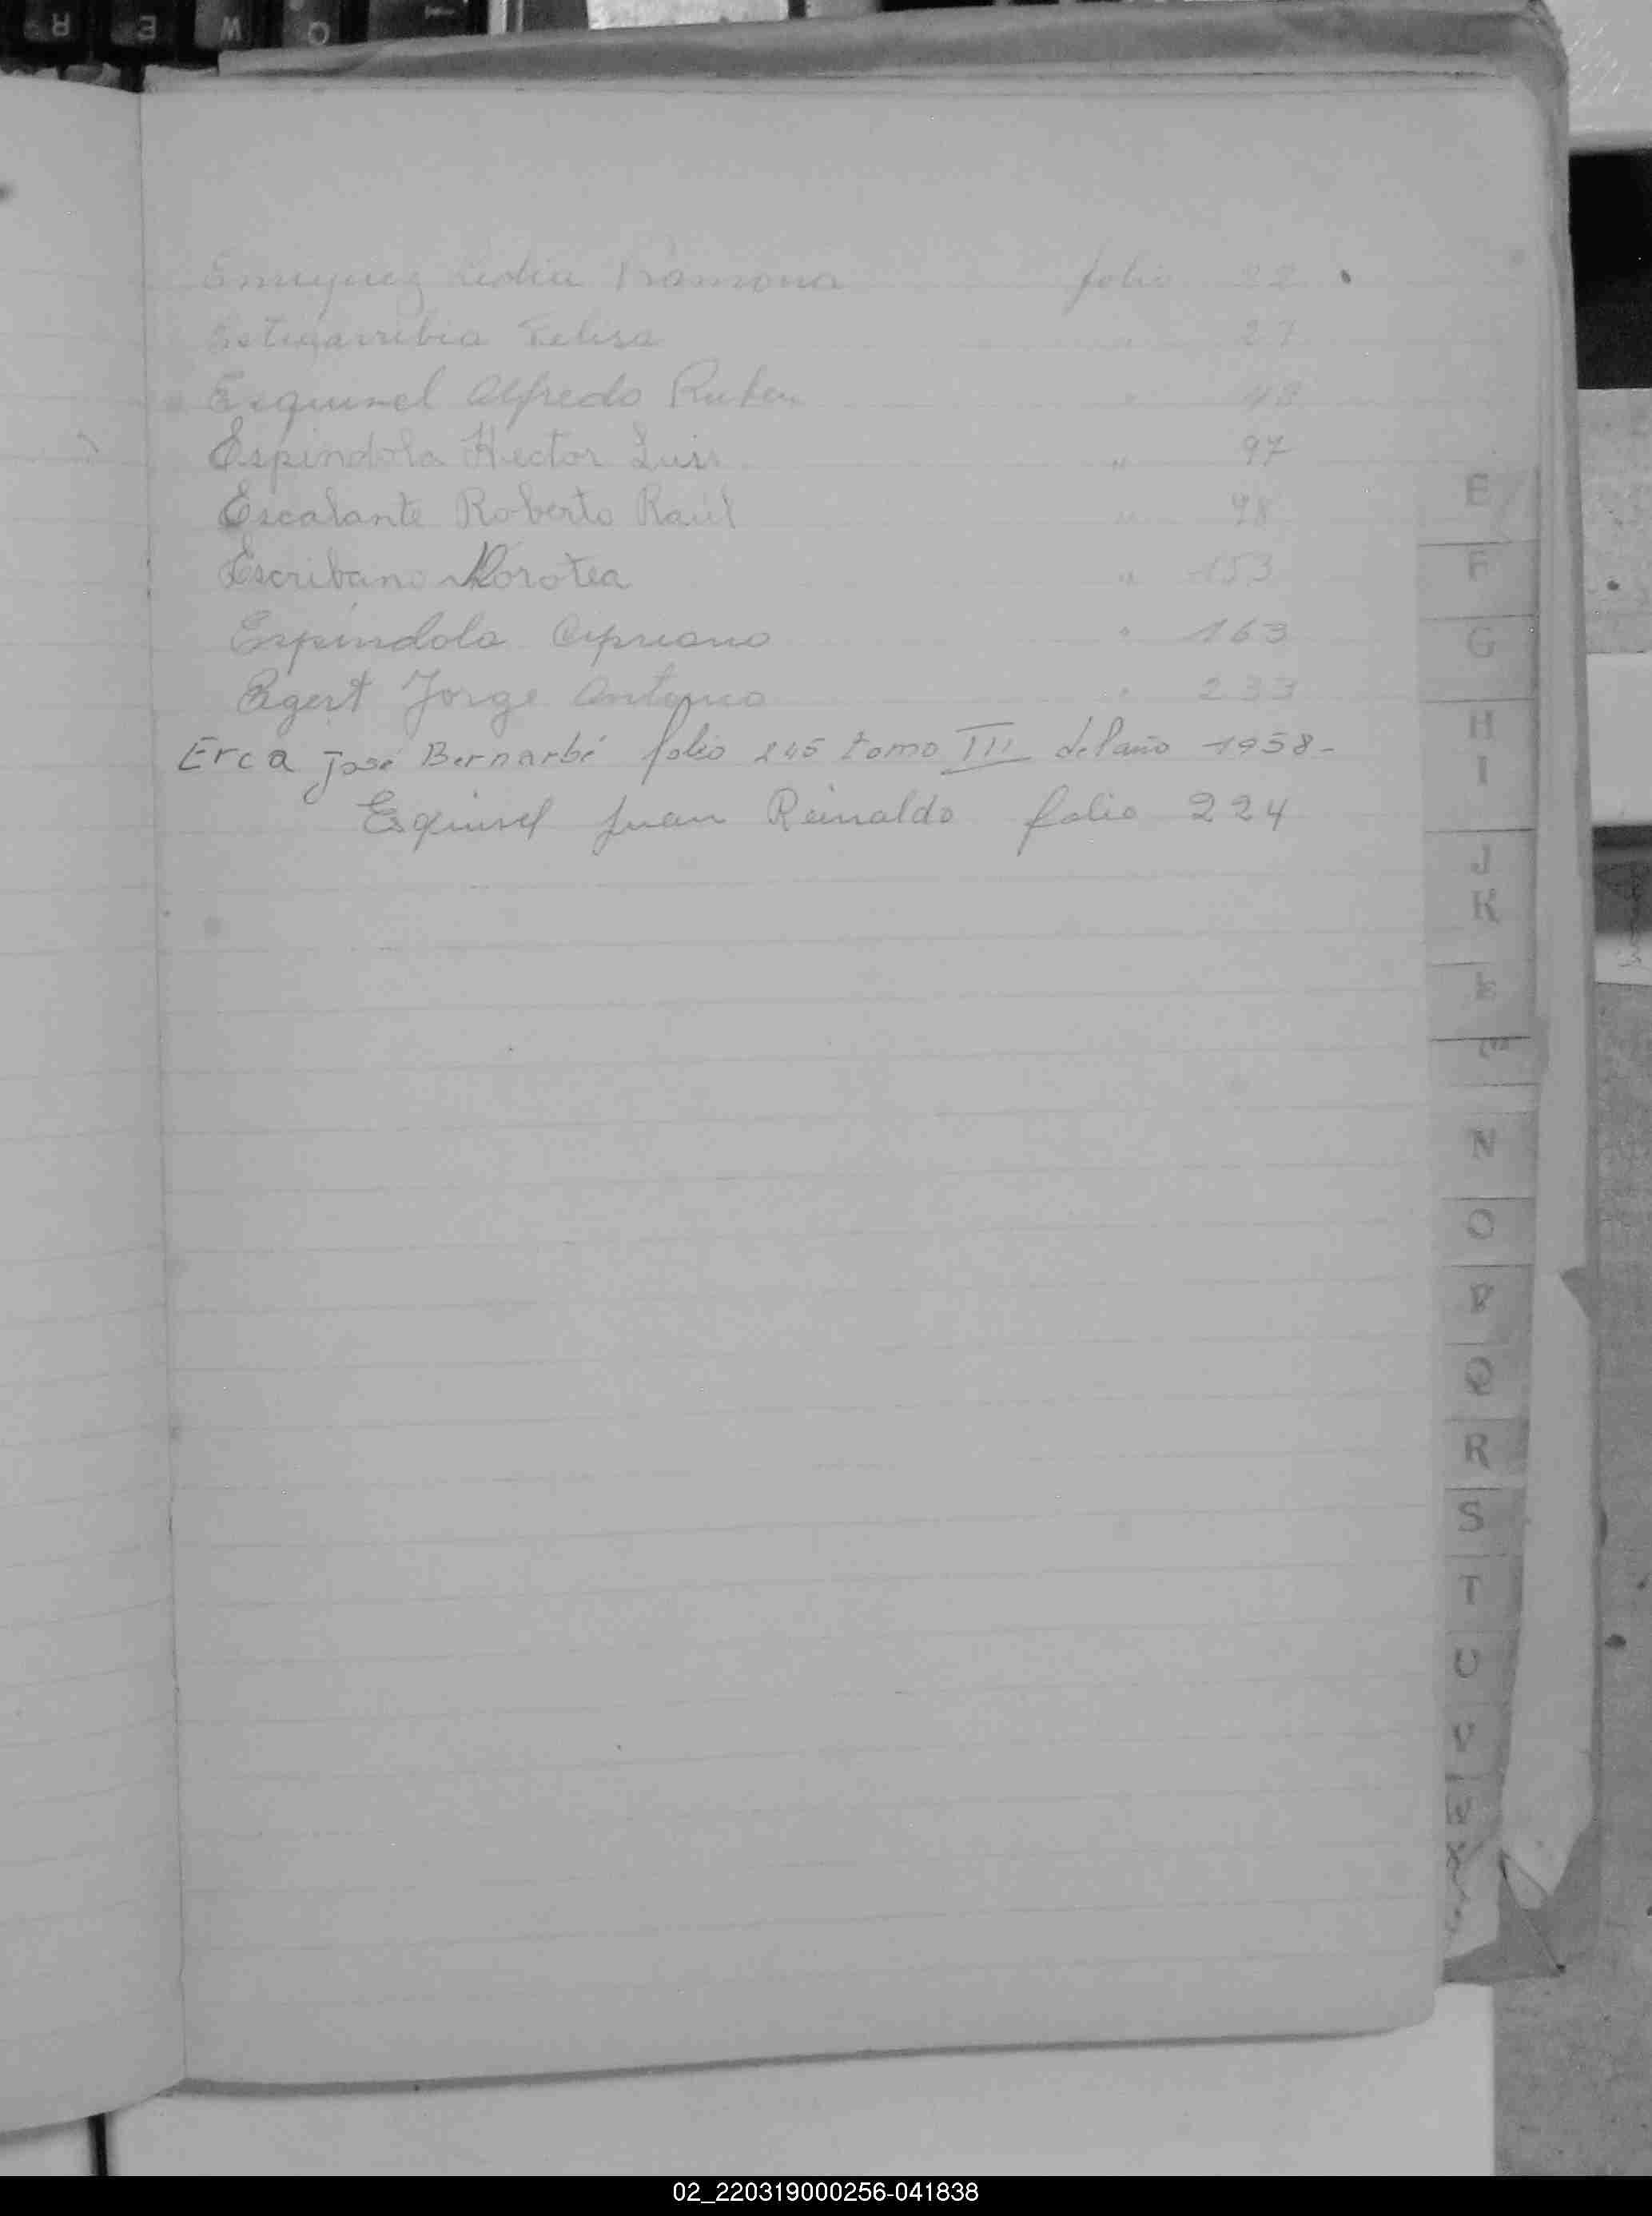 Enriquez Lidia Ramona folio 22
Estigarribia Felisa " 27
Esquivel Alfredo Ruben " 48
Espindola Hector Luis " 97
Escalante Roberto Raúl " 98
Escribano Dorotea " 153
Espíndola Cipriano " 163
Egert Jorge Antonio " 233
Erca José Bernarbé folio 245 tomo III del año 1958-
Esquivel Juan Reinaldo folio 224
E
F
G
H
I
J
K
L
M
N
O
P
Q
R
S
T
U
V
02_220319000256-041838